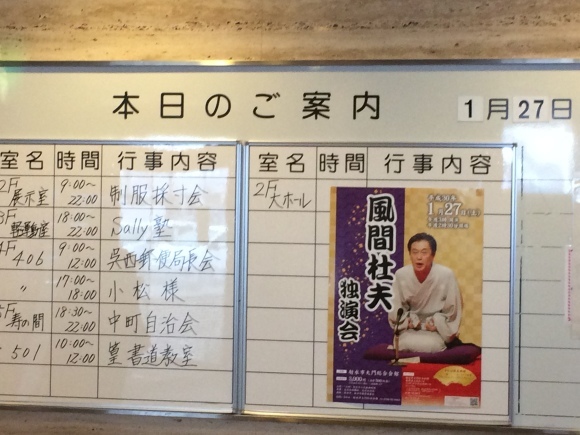 本日のご案内 1月27日
室名 時間 行事内容
2F 展示室 9:00~22:00 制服採寸会
軽運動室 18:00~22:00 Sally塾
406 9:00~12:00 呉西郵便局長会
〃 17:00~18:00 小松様
寿の間 18:30~22:00 中町自治会
501 10:00~12:00 篁書道教室
室名 時間 行事内容
2F 大ホール
平成30年
1月27日(土)
風間杜夫
独演会